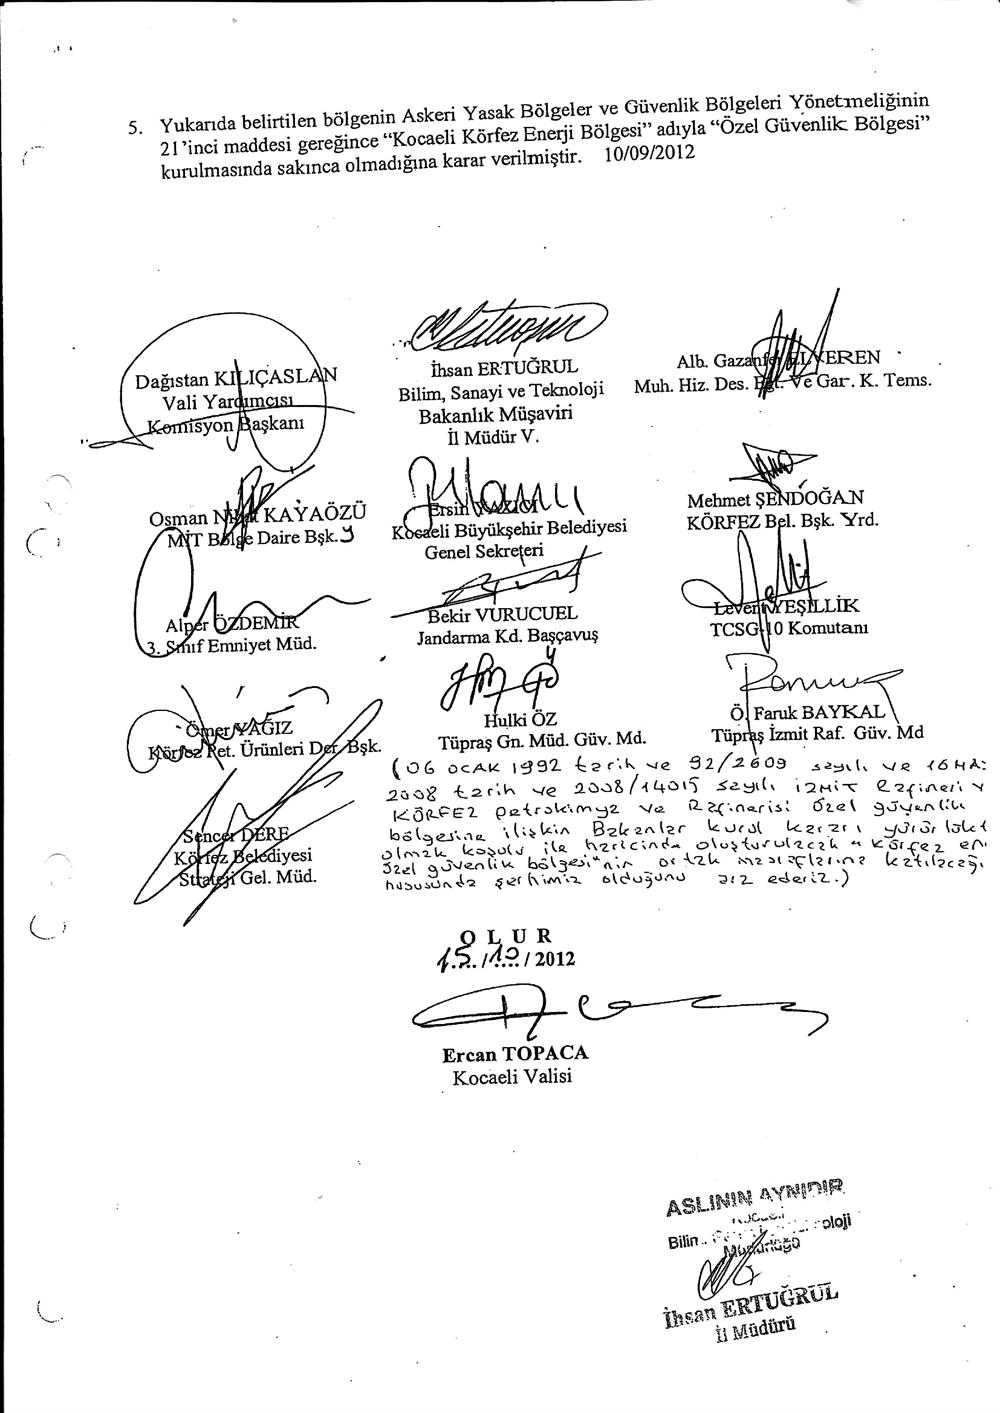 5. Yukarıda belirtilen bölgenin Askeri Yasak Bölgeler ve Güvenlik Bölgeleri Yönetmeliğinin
21'inci maddesi gereğince “Kocaeli Körfez Enerji Bölgesi” adıyla “Özel Güvenlik Bölgesi”
kurulmasında sakınca olmadığına karar verilmiştir. 10/09/2012
Dağıstan KILIÇASLAN
Vali Yardımcısı
Komisyon Başkanı
İhsan ERTUĞRUL
Bilim, Sanayi ve Teknoloji
Bakanlık Müşaviri
İl Müdür V.
Alb. Gazanfer ELVEREN
Muh. Hiz. Des. Eğt. Ve Gar. K. Tems.
Osman Nihat KAYAÖZÜ
MİT Bölge Daire Bşk.Y
Ersin YAZICI
Kocaeli Büyükşehir Belediyesi
Genel Sekreteri
Mehmet ŞENDOĞAN
KÖRFEZ Bel. Bşk. Yrd.
Alper ÖZDEMİR
3. Sınıf Emniyet Müd.
Bekir VURUCUEL
Jandarma Kd. Başçavuş
Levent YEŞİLLİK
TCSG-10 Komutanı
Ömer YAĞIZ
Körfez Pet. Ürünleri Der. Bşk.
Hulki ÖZ
Tüpraş Gn. Müd. Güv. Md.
Ö. Faruk BAYKAL
Tüpraş İzmit Raf. Güv. Md
Sencer DERE
Körfez Belediyesi
Strateji Gel. Müd.
(06 OCAK 1992 tarih ve 92/2609 sayılı ve 16 MA
2008 tarih ve 2008/14015 sayılı İZMİT Rafineri v
KÖRFEZ petrokimya ve Rafinerisi özel güvenlik
bölgesine ilişkin Bakanlar kurul kararı yürürlükt
olmak koşulu ile haricinde oluşturulacak "Körfez en
özel güvenlik bölgesi"nin ortak masraflarına katılacağı
hususunda şerhimiz olduğunu arz ederiz.)
O L U R
15/10/2012
Ercan TOPACA
Kocaeli Valisi
ASLININ AYNIDIR
Müdürlüğü
İhsan ERTUĞRUL
İl Müdürü